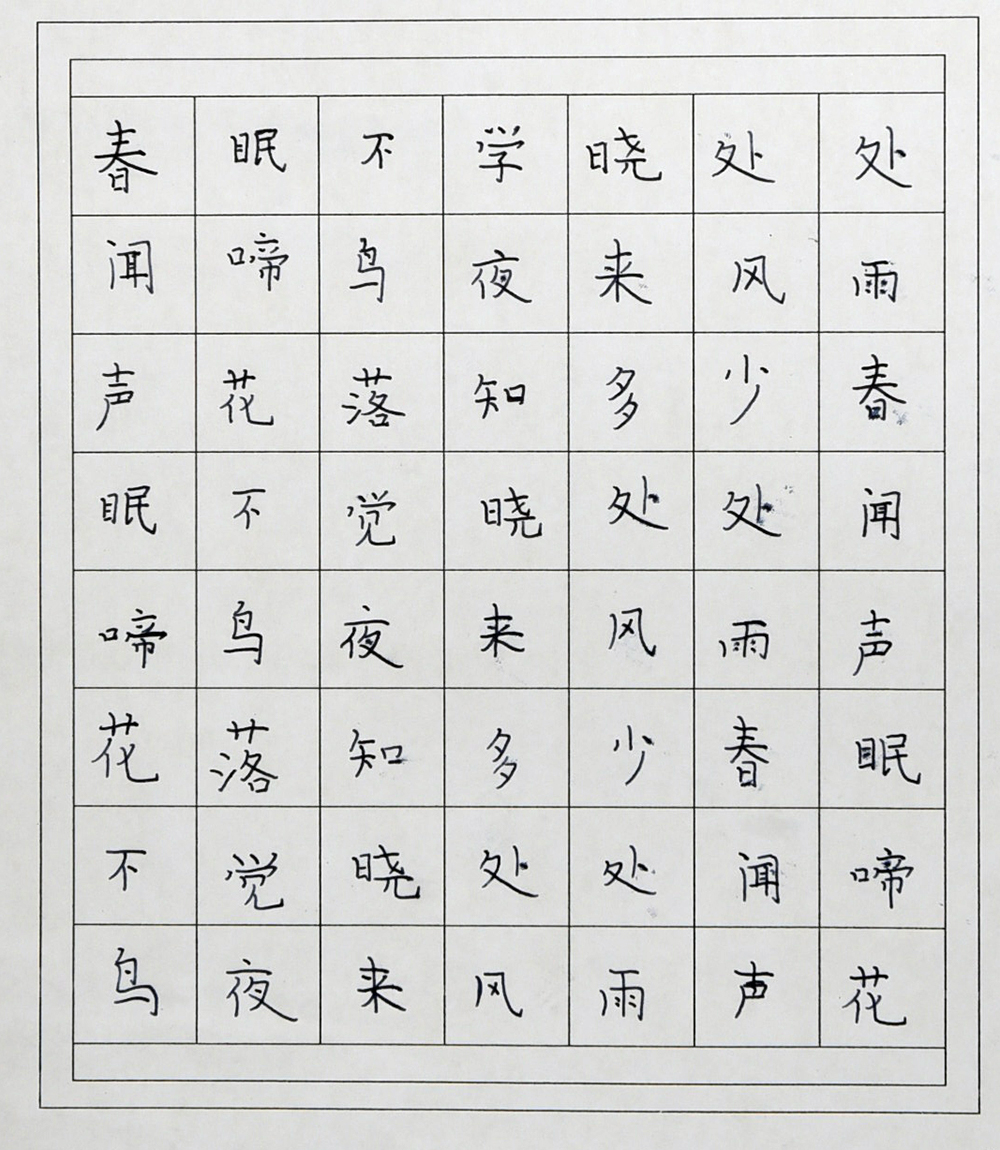 春眠不学晓处处
闻啼鸟夜来风雨
声花落知多少春
眠不觉晓处处闻
啼鸟夜来风雨声
花落知多少春眠
不觉晓处处闻啼
鸟夜来风雨声花